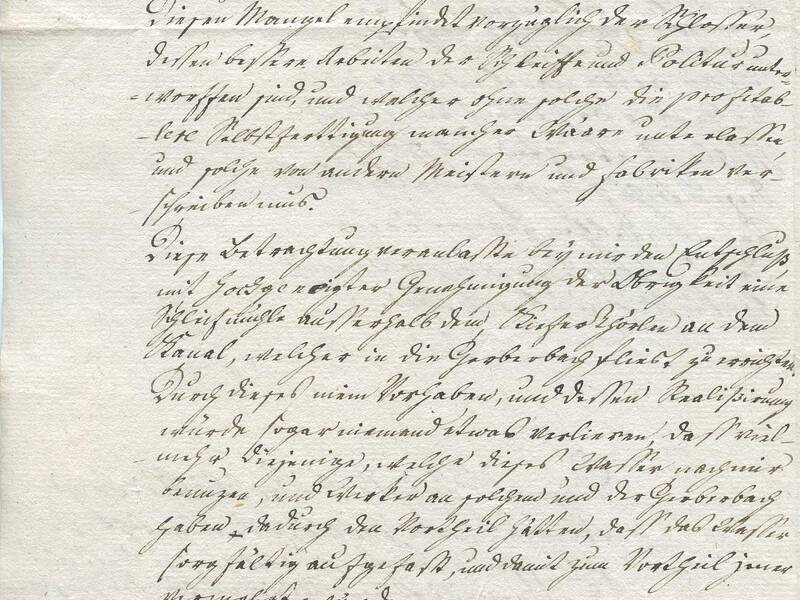 Diesen Mangel empfindet vorzüglich der Schlosser,
dessen bessere Arbeiten der Schleiffe und Politur unter-
=worffen sind, und welcher ohne solche die profitab-
=lere Selbstfertigung mancher Waare unterlassen,
und solche von andern Meistern und Fabriken ver-
=schreiben mus.
Diese Betrachtung veranlasste bey mir den Entschluß,
mit hochgeneigter Genehmigung der Obrigkeit eine
Schleifmühle ausserhalb dem an dem
Kanal, welcher in die Gerberbach fliest zu errichten.
Durch dieses mein Vorhaben, und dessen Realisirung
würde sogar niemand etwas verlieren, dass viel-
=mehr diejenige, welche dieses Wasser nach mir
benuzen, und Werker an solchem und der Gerberbach
haben, dadurch den Vortheil hätten, dass das Wasser
sorgfältig aufgefast, und damit zum Vortheil jener